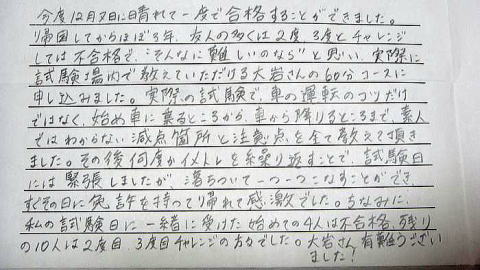 今度12月又日に晴れて一度で合格することができました。
帰国してからほぼ3年、友人の多くは2度3度とチャレンジ
しては不合格で、"そんなに難しいのなら"と思い、実際に
試験場内で教えていただける大岩さんの60分コースに
申し込みました。実際の試験で、車の運転のコツだけ
ではなく、始め車に乗るところから、車から降りるところまで、素人
ではわからない減点箇所と注意点を全て教えて頂き
ました。その後何度かイメトレを繰り返すことで、試験日
には緊張しましたが、落ちついて一つ一つこなすことができ、
すぐその日に免許を持って帰れて感激でした。ちなみに、
私の試験日に一緒に受けた始めての4人は不合格、残り
の10人は2度目、3度目チャレンジの方々でした。大岩さん有難うござい
ました!